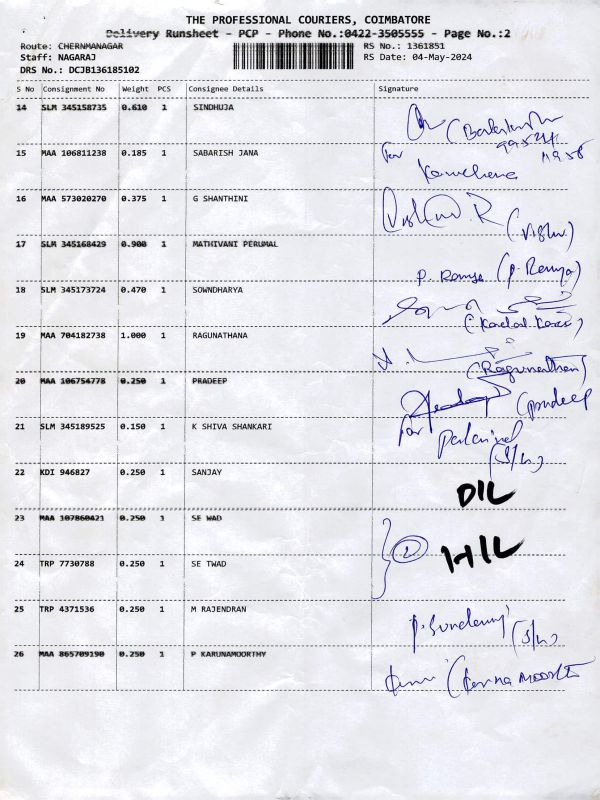 THE PROFESSIONAL COURIERS, COIMBATORE
Delivery Runsheet - PCP - Phone No.:0422-3505555 - Page No.:2
Route: CHERNMANAGAR RS No.: 1361851
Staff: NAGARAJ RS Date: 04-May-2024
DRS No.: DCJB136185102
S No Consignment No Weight PCS Consignee Details Signature
14 SLM 345158735 0.610 1 SINDHUJA
15 MAA 106811238 0.185 1 SABARISH JANA for
16 MAA 573020270 0.375 1 G SHANTHINI
(Vishnu)
17 SLM 345168429 0.900 1 MATHIVANI PERUMAL
P. Ramya (P. Ramya)
18 SLM 345173724 0.470 1 SOWNDHARYA
19 MAA 704182738 1.000 1 RAGUNATHANA
(Ragunathan)
20 MAA 106754778 0.250 1 PRADEEP
(pradeep
21 SLM 345189525 0.150 1 K SHIVA SHANKARI for
(S/W)
22 KDI 946827 0.250 1 SANJAY
D/L
23 MAA 107860421 0.250 1 SE WAD
H/L
24 TRP 7730788 0.250 1 SE TWAD
25 TRP 4371536 0.250 1 M RAJENDRAN
(S/W)
26 MAA 865709190 0.250 1 P KARUNAMOORTHY